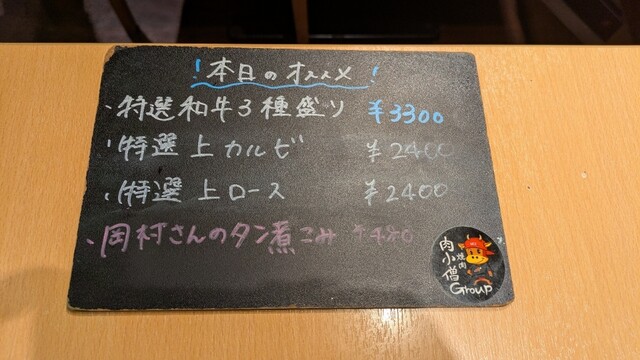 ！本日のオススメ！
・特選和牛3種盛り ¥3300
・特選上カルビ ¥2400
・特選上ロース ¥2400
・岡村さんのタン煮こみ ¥480
肉小僧
焼肉
Group